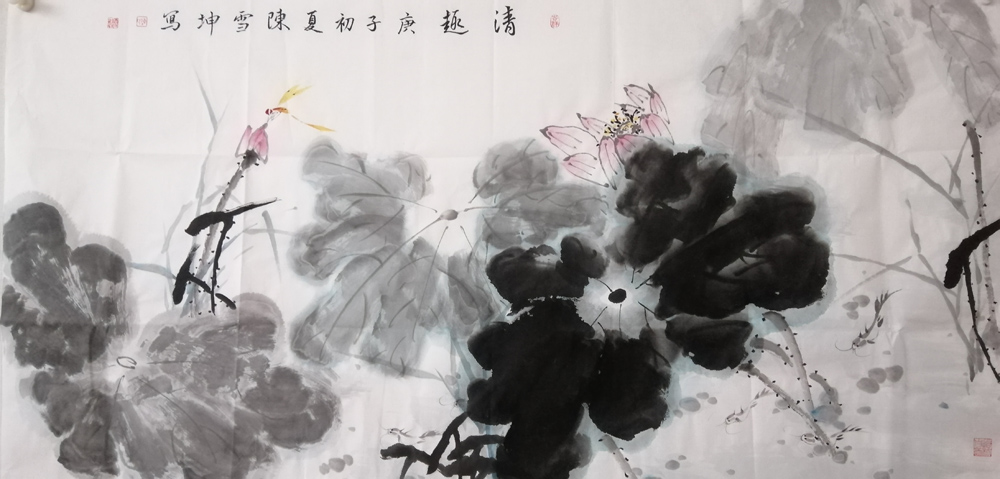 清趣庚子初夏陳雪坤寫